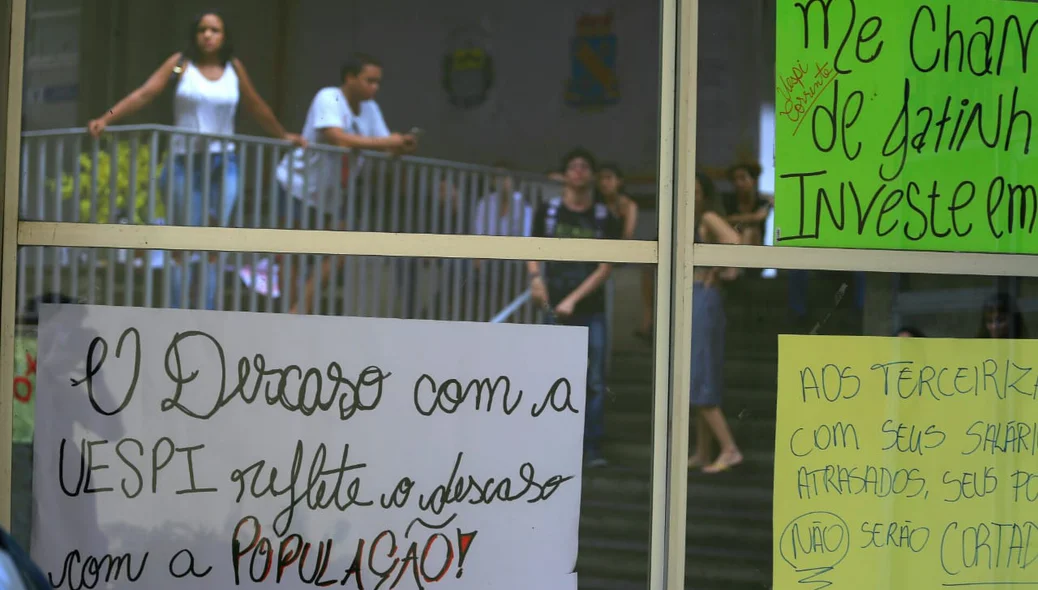 O Descaso com a
VESPI reflete o descaso
com a POPULAÇÃO!
Me Chan
Vespi
Corrente
de gatinh
INVeste em
AOS TERCEIRIZA
COM SEUS SALÁRI
ATRASADOS, SEUS PO
NÃO SERÃO CORTAD